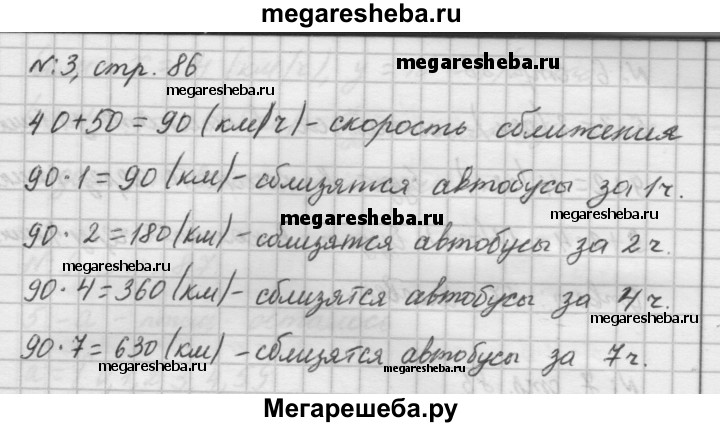 megaresheba.ru
№3, стр. 86
megaresheba.ru
megaresheba.ru
40+50=90 (км/ч) - скорость сближения
90·1=90 (км) - сблизятся автобусы за 1 ч.
megaresheba.ru
megaresheba.ru
90·2=180 (км) - сблизятся автобусы за 2 ч.
megaresheba.ru
90·4=360 (км) - сблизятся автобусы за 4 ч.
megaresheba.ru
90·7=630 (км) - сблизятся автобусы за 7 ч.
megaresheba.ru
megaresheba.ru
Мегарешеба.ру